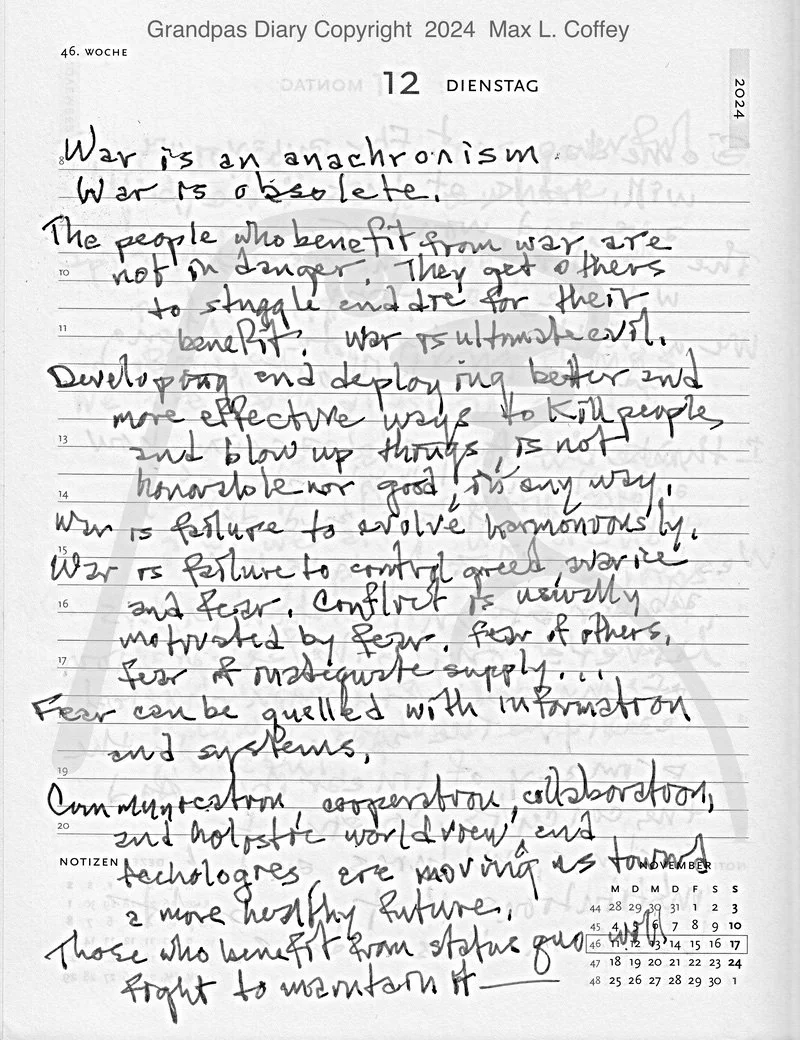 Grandpas Diary Copyright 2024 Max L. Coffey
46. WOCHE
12 DIENSTAG
2024
8 War is an anachronism.
War is obsolete.
The people who benefit from war are
10 not in danger. They get others
to stuggle and die for their
11 benefit. War is ultimate evil.
Developing and deploying better and
more effective ways to kill people,
13 and blow up things, is not
honorable nor good, in any way.
14
War is failure to evolve harmonously.
15
War is failure to control greed, avarice
16 and fear. Conflict is usually
motivated by fear. fear of others,
17 fear of inadequate supply...
Fear can be quelled with information
and systems.
19
Communication, cooperation, collaboration,
20 and holistic world view, and
NOTIZEN techologies, are moving us toward
a more healthy future.
Those who benefit from status quo will
fight to maintain it
NOVEMBER
M D M D F S S
44 28 29 30 31 1 2 3
45 4 5 6 7 8 9 10
46 11 12 13 14 15 16 17
47 18 19 20 21 22 23 24
48 25 26 27 28 29 30 1